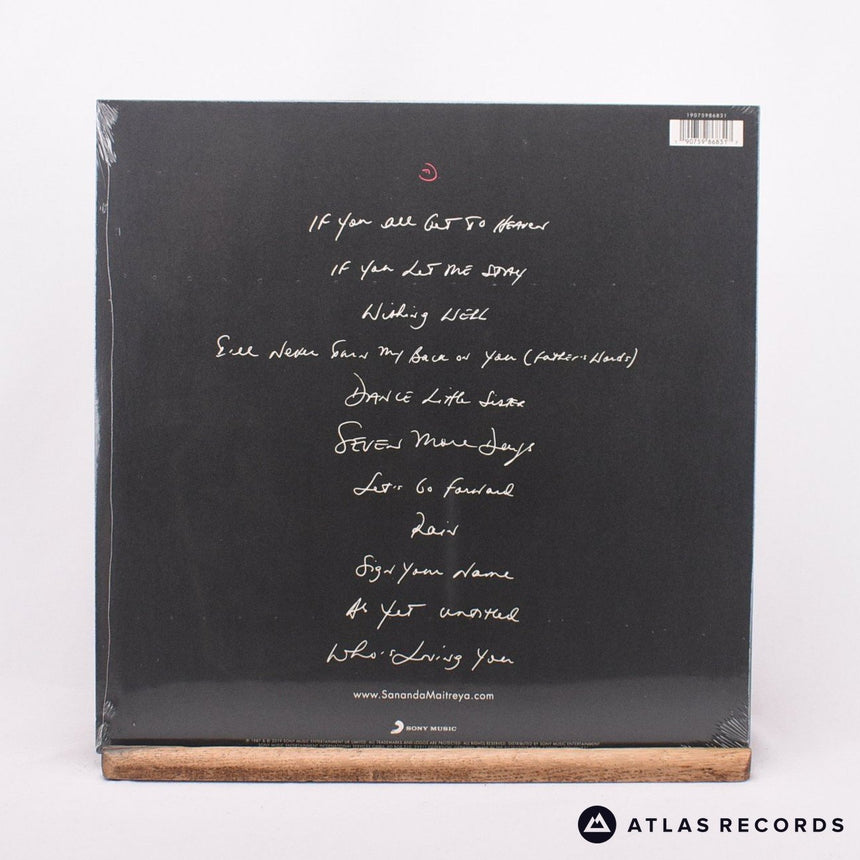 19075986831
1 90759 86831 7
If You All Get To Heaven
If You Let Me Stay
Wishing Well
I'll Never Turn My Back on You (Father's Words)
Dance Little Sister
Seven More Days
Let's Go Forward
Rain
Sign Your Name
As Yet Untitled
Who's Loving You
www.SanandaMaitreya.com
SONY MUSIC
ATLAS RECORDS